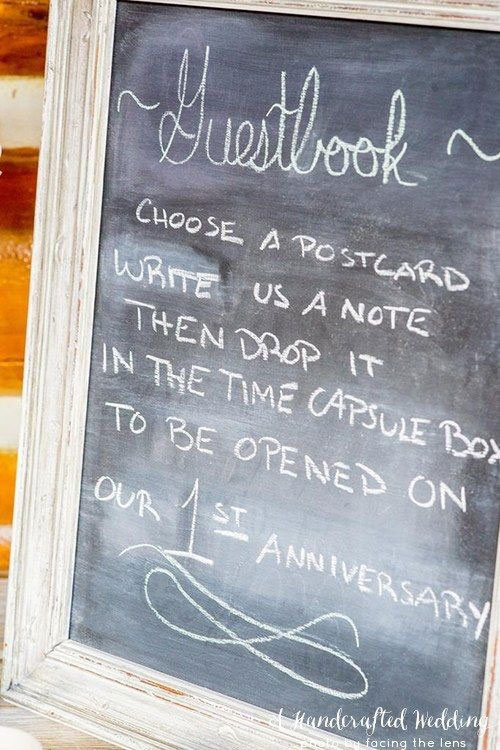 ~ Guestbook ~
CHOOSE A POSTCARD
WRITE US A NOTE
THEN DROP IT
IN THE TIME CAPSULE BOX
TO BE OPENED ON
OUR 1ST ANNIVERSARY
A Handcrafted Wedding
photo by facing the lens